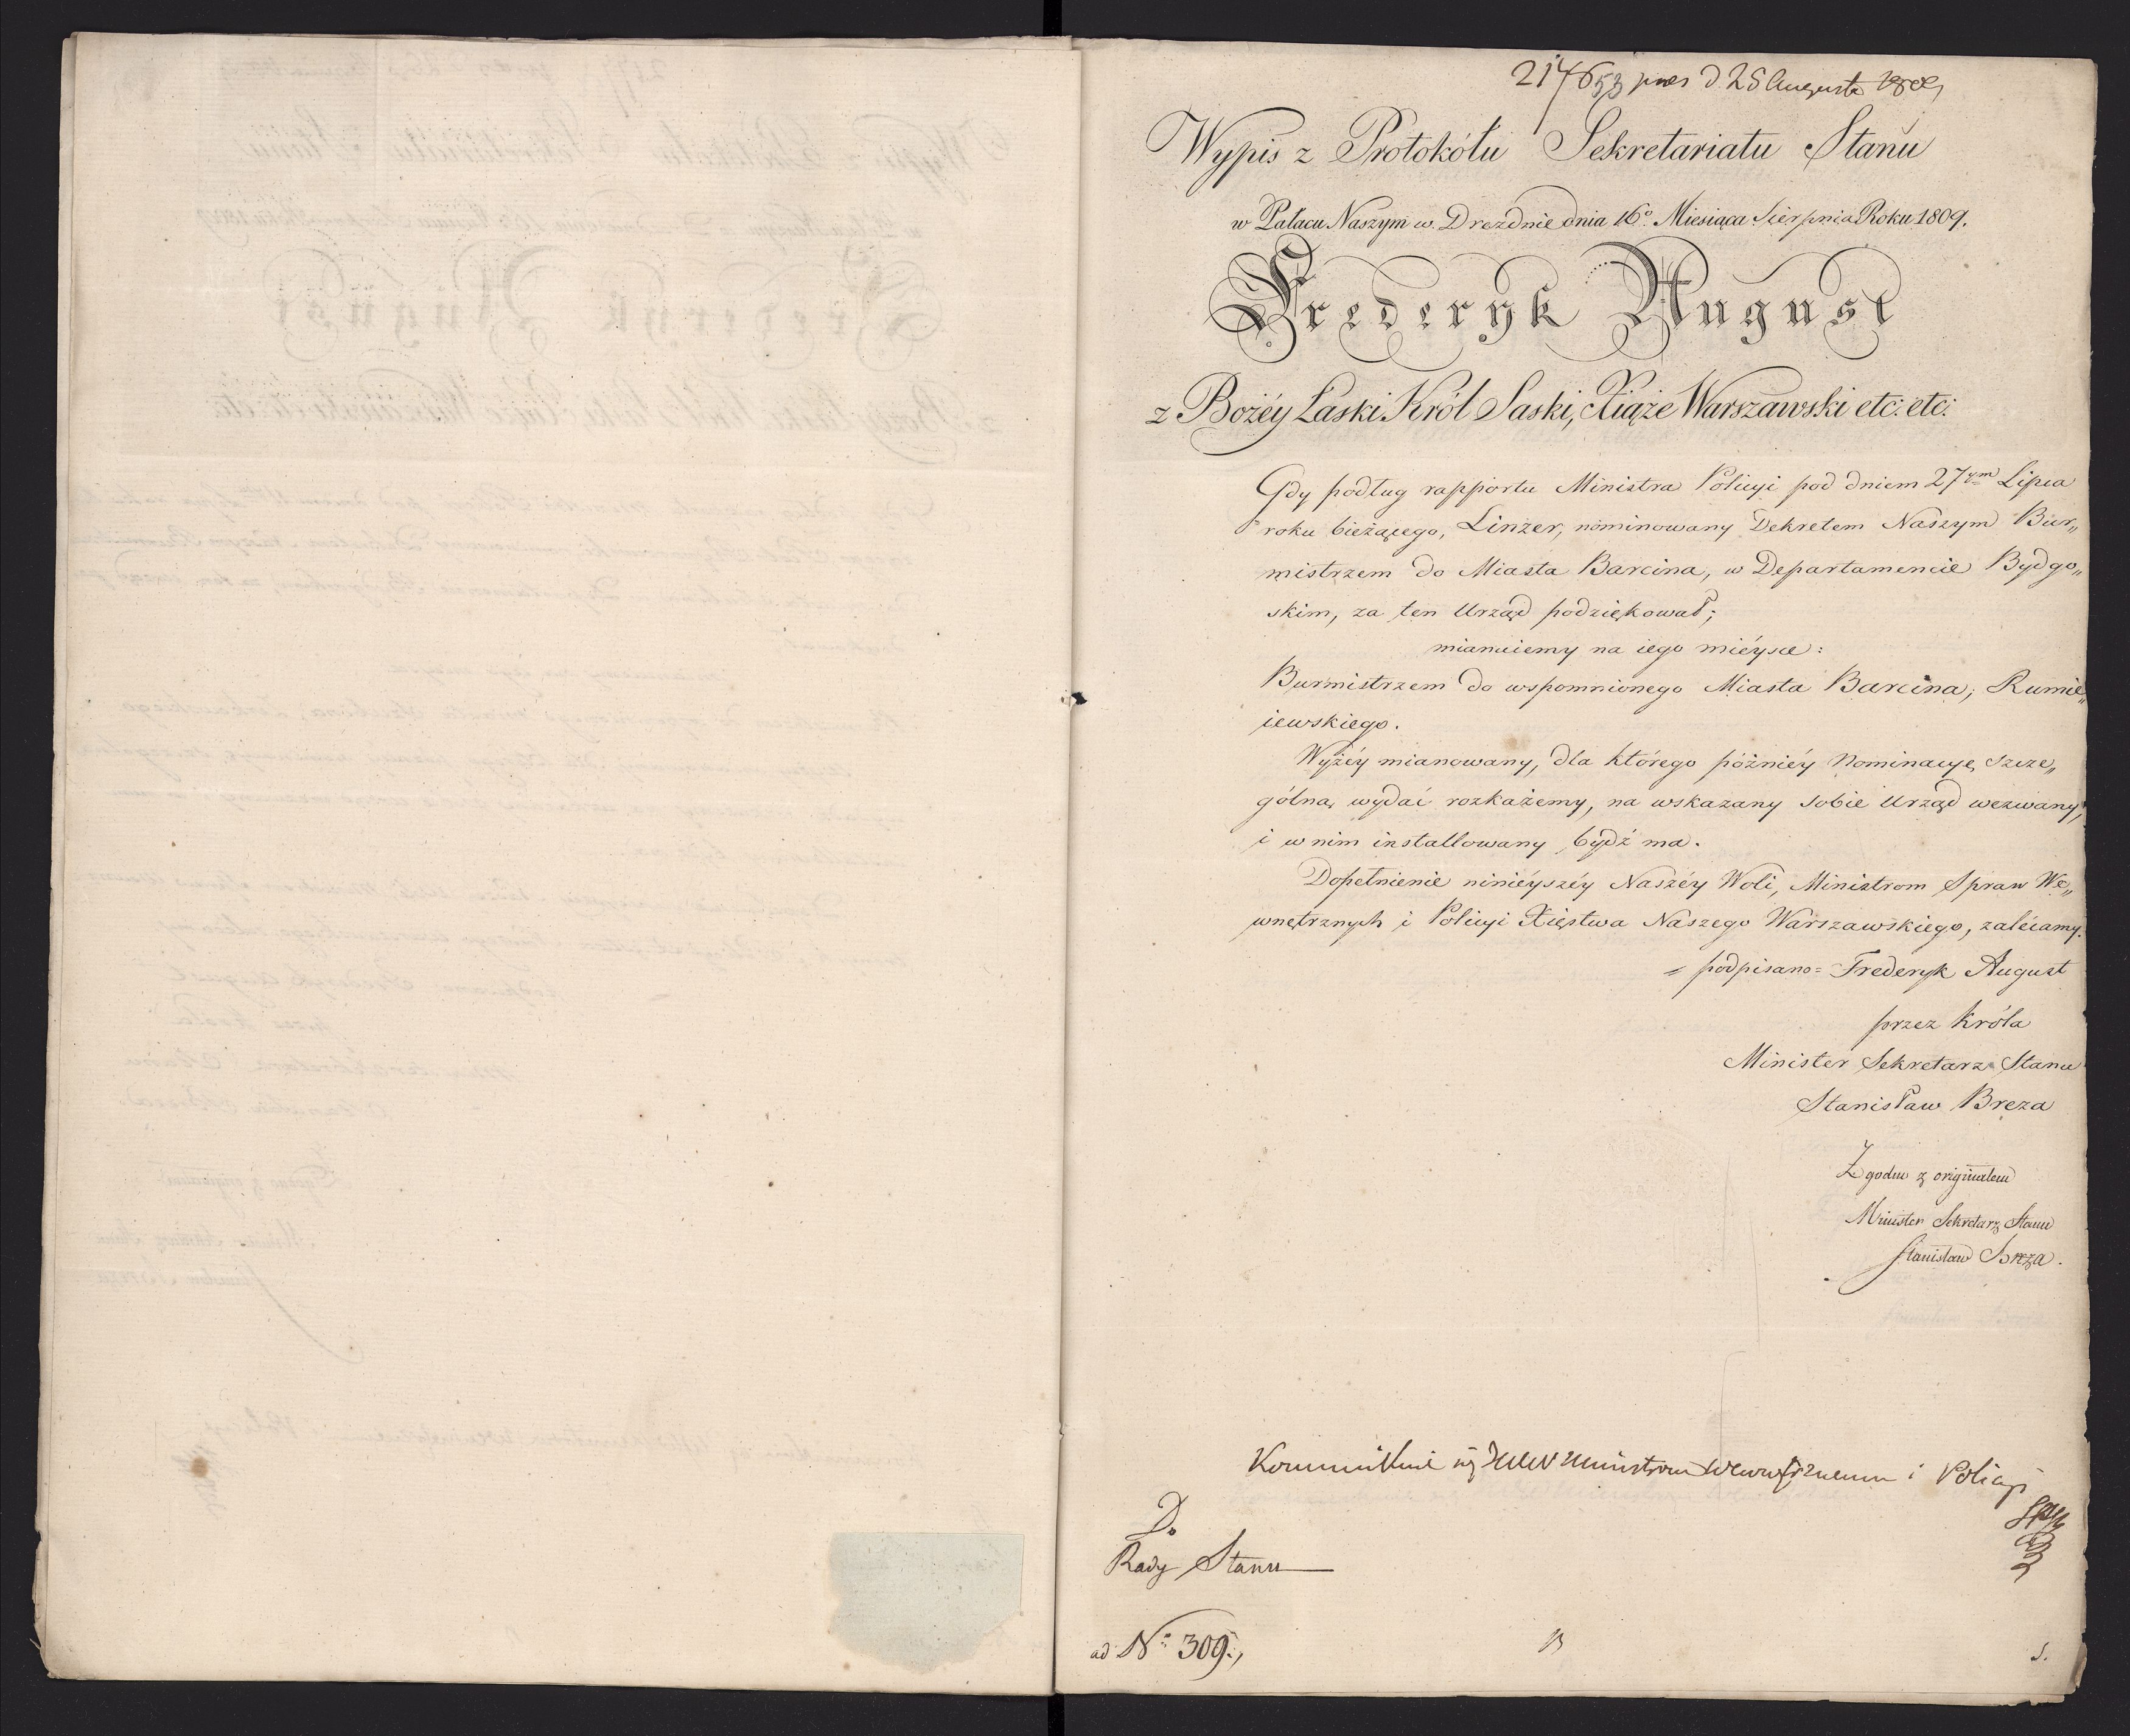 2146 53 pres d 25 Augusta 1809
Wypis z Protokółu Sekretariatu Stanu
w Pałacu Naszym w Dreźdnie dnia 16º Miesiąca Sierpnia Roku 1809.
Frederyk August
z Bożéy Łaski Król Saski, Xiąże Warszawski etc: etc:
Gdy podług rapportu Ministra Policyi pod dniem 27ym Lipca
roku bieżącego, Linzer, nominowany Dekretem Naszym Bur„
mistrzem do Miasta Barcina, w Departamencie Bydgo„
skim, za ten Urząd podziękował;
mianuiemy na iego mieysce:
Burmistrzem do wspomnionego Miasta Barcina, Rumie„
iewskiego.
Wyżéy mianowany, dla którego późniéy Nominacyę szcze„
gólną wydać rozkażemy, na wskazany sobie Urząd wezwany,
i w nim installowany bydź ma.
Dopełnienie ninieyszéy Naszéy Woli, Ministrom Spraw We„
wnętrznych i Policyi Xięstwa Naszego Warszawskiego, zalecamy.
= podpisano = Frederyk August
przez Króla
Minister Sekretarz Stanu
Stanisław Breza
Zgodno z originałem
Minister Sekretarz Stanu
Stanisław Breza.
i Policyi
Do
Rady Stanu
ad Nº 309.,